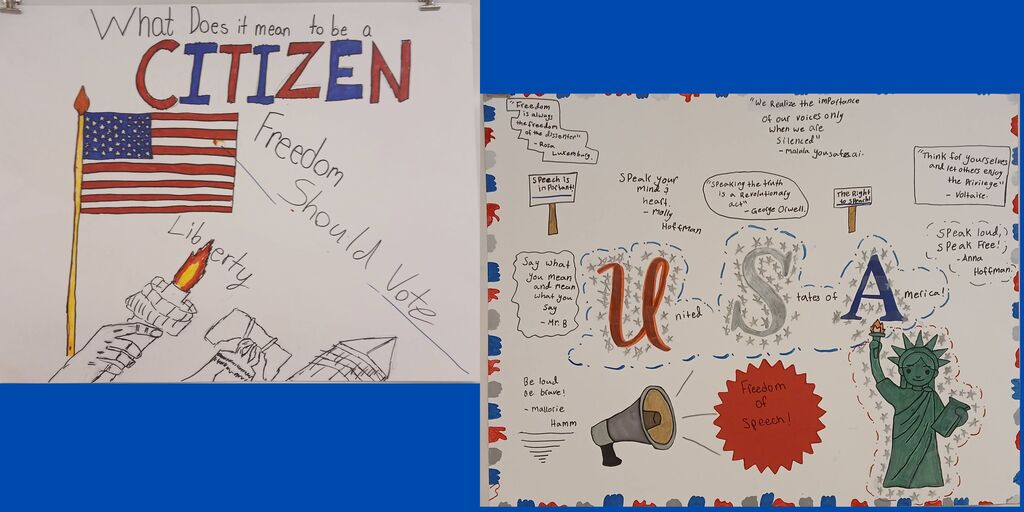 What Does it mean to be a
CITIZEN
Freedom
Should Vote
Liberty
"Freedom
is always
the freedom
of the dissenter"
- Rosa
Luxemburg.
"We Realize the importance
of our voices only
when we are
silenced"
- Malala yousafzai.
"Think for yourselves
and let others enjoy
the Privilege"
- Voltaire.
Speech is
important!
Speak your
mind &
heart.
- Molly
Hoffman
"Speaking the truth
is a Revolutionary
act"
- George Orwell.
The Right
to speech!
Speak loud,
Speak Free!
- Anna
Hoffman.
Say what
you mean
and mean
what you
say
- Mr. B
United
States of
America!
Be loud
Be brave!
- Mallorie
Hamm
Freedom
of
Speech!